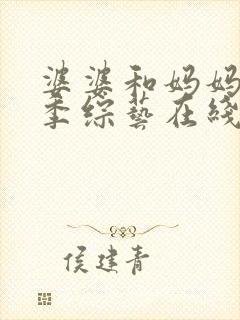 婆婆和妈妈
季综艺在线
侯建青